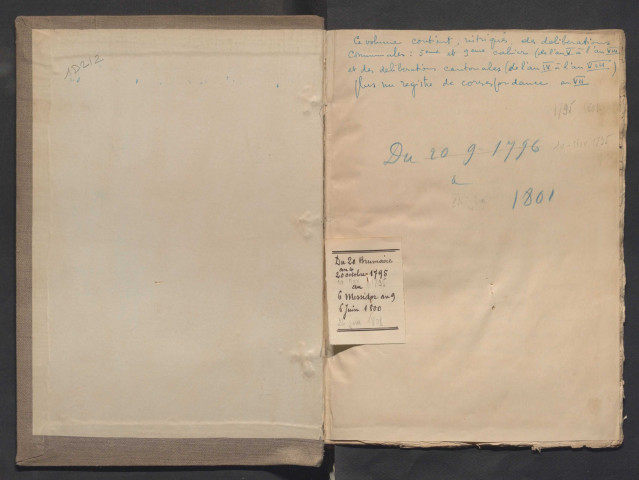 1D212
Ce volume contient, intriqués, des délibérations
communales : 5ème et 9ème cahier (de l'an V à l'an VIII)
et des délibérations cantonales (de l'an IV à l'an VIII)
plus un registre de correspondance an VII
Du 20-9-1796
à
1801
Du 20 Brumaire
an 4
20 octobre 1795
au
6 Messidor an 9
6 Juin 1800